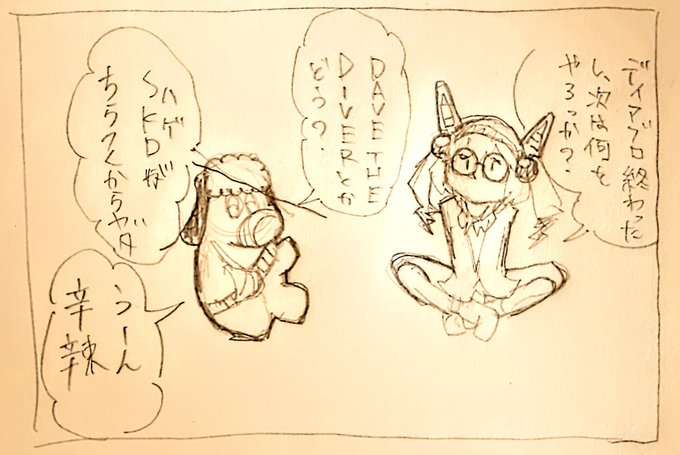 ディアブロ終わった
し、次は何を
やろっか？
DAVE THE
DIVERとか
どう？
ハゲ
SKDが
ちらつくからヤダ
うーん
辛辣